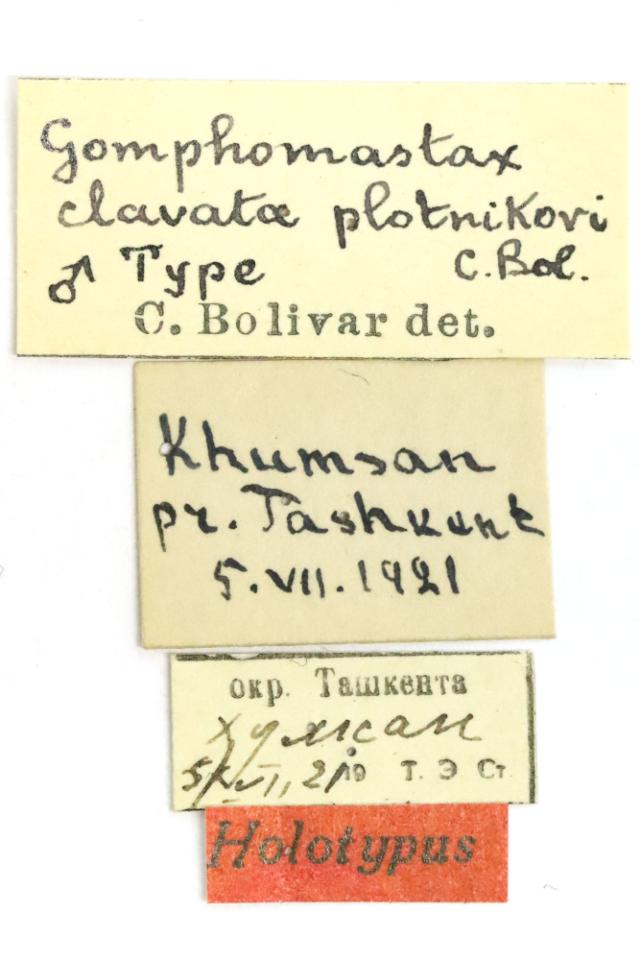 Gomphomastax
clavata plotnikovi
♂ Type C. Bol.
C. Bolivar det.
Khumsan
pr. Tashkent
5.VII.1921
окр. Ташкента
хумсан
5/VII, 21 Т. Э Ст.
Holotypus